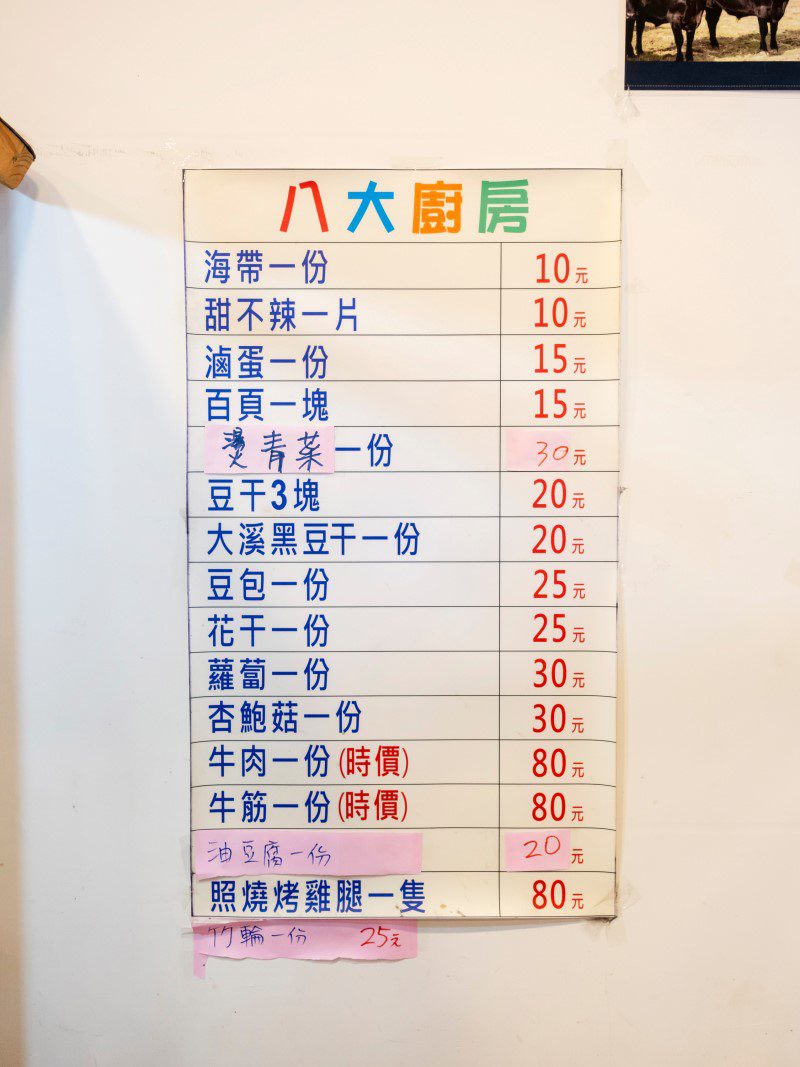 八大廚房
海帶一份 10元
甜不辣一片 10元
滷蛋一份 15元
百頁一塊 15元
燙青菜一份 30元
豆干3塊 20元
大溪黑豆干一份 20元
豆包一份 25元
花干一份 25元
蘿蔔一份 30元
杏鮑菇一份 30元
牛肉一份(時價) 80元
牛筋一份(時價) 80元
油豆腐一份 20元
照燒烤雞腿一隻 80元
竹輪一份 25元